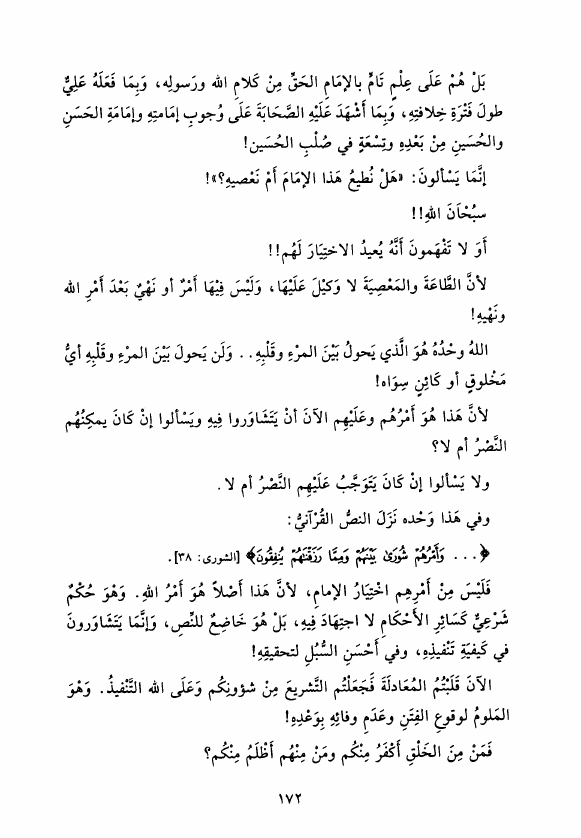 بَلْ هُمْ عَلَى عِلْمٍ تَامٍّ بالإمَامِ الحَقِّ مِنْ كَلامِ الله ورَسولِه، وَبِمَا فَعَلَهُ عَلِيٌّ
طولَ فَتْرَةِ خِلافتِهِ، وَبِمَا أَشْهَدَ عَلَيْهِ الصَّحَابَةَ عَلَى وُجوبِ إمَامتِهِ وإمَامَةِ الحَسَنِ
والحُسَينِ مِنْ بَعْدِهِ وتِسْعَةٍ في صُلْبِ الحُسَين!
إنَّمَا يَسْألونَ: «هَلْ نُطيعُ هَذا الإمَامَ أمْ نَعْصيهِ؟»!
سبُحْاَنَ اللهِ!!
أوَ لا تَفْهَمونَ أنَّهُ يُعيدُ الاختِيَارَ لَهُم!!
لأنَّ الطَّاعَةَ والمَعْصِيَةَ لا وَكيْلَ عَلَيْهَا، وَلَيْسَ فِيْهَا أمْرٌ أو نَهْيٌ بَعْدَ أمْرِ الله
ونَهْيِهِ!
اللهُ وحْدُهُ هُوَ الَّذي يَحولُ بَيْنَ المرْءِ وقَلْبِهِ.. وَلَن يَحولَ بَيْنَ المرْءِ وقَلْبِهِ أيُّ
مَخْلوقٍ أو كَائِنٍ سِوَاه!
لأنَّ هَذا هُوَ أمْرُهُم وعَلَيْهِم الآنَ أنْ يَتَشَاوَروا فِيهِ ويَسْألوا إنْ كَانَ يمكِنُهُم
النَّصْرُ أم لا؟
ولا يَسْألوا إنْ كَانَ يَتَوَجَّبُ عَلَيْهِم النَّصْرُ أم لا.
وفي هَذا وَحْده نَزَلَ النصُّ القُرْآنيُّ:
﴿... وَأَمْرُهُمْ شُورَىٰ بَيْنَهُمْ وَمِمَّا رَزَقْنَاهُمْ يُنفِقُونَ﴾ [الشورى: ٣٨].
فَلَيْسَ مِنْ أمْرِهِم اخْتِيَارُ الإمامِ، لأنَّ هَذا أصْلاً هُوَ أمْرُ اللهِ. وَهْوَ حُكْمٌ
شَرْعِيٌّ كَسَائِرِ الأحْكَامِ لا اجتِهَادَ فِيهِ، بَلْ هُوَ خَاضِعٌ للنِّصِ، وَإنَّمَا يَتَشَاوَرونَ
في كَيفيَةِ تَنْفيذِهِ، وفي أحْسَنِ السُّبُلِ لتحقيقِهِ!
الآنَ قَلَبْتُمُ المُعَادلَةَ فَجَعَلْتُم التَّشريعَ مِنْ شؤونِكُم وَعَلَى الله التَّنْفيذُ. وَهْوَ
المَلومُ لوقوعِ الفِتَنِ وعَدَمِ وفائِهِ بِوَعْدِهِ!
فَمَنْ مِنَ الخَلْقِ أكْفَرُ مِنْكُم ومَنْ مِنْهُم أظْلَمُ مِنْكُم؟
١٧٢